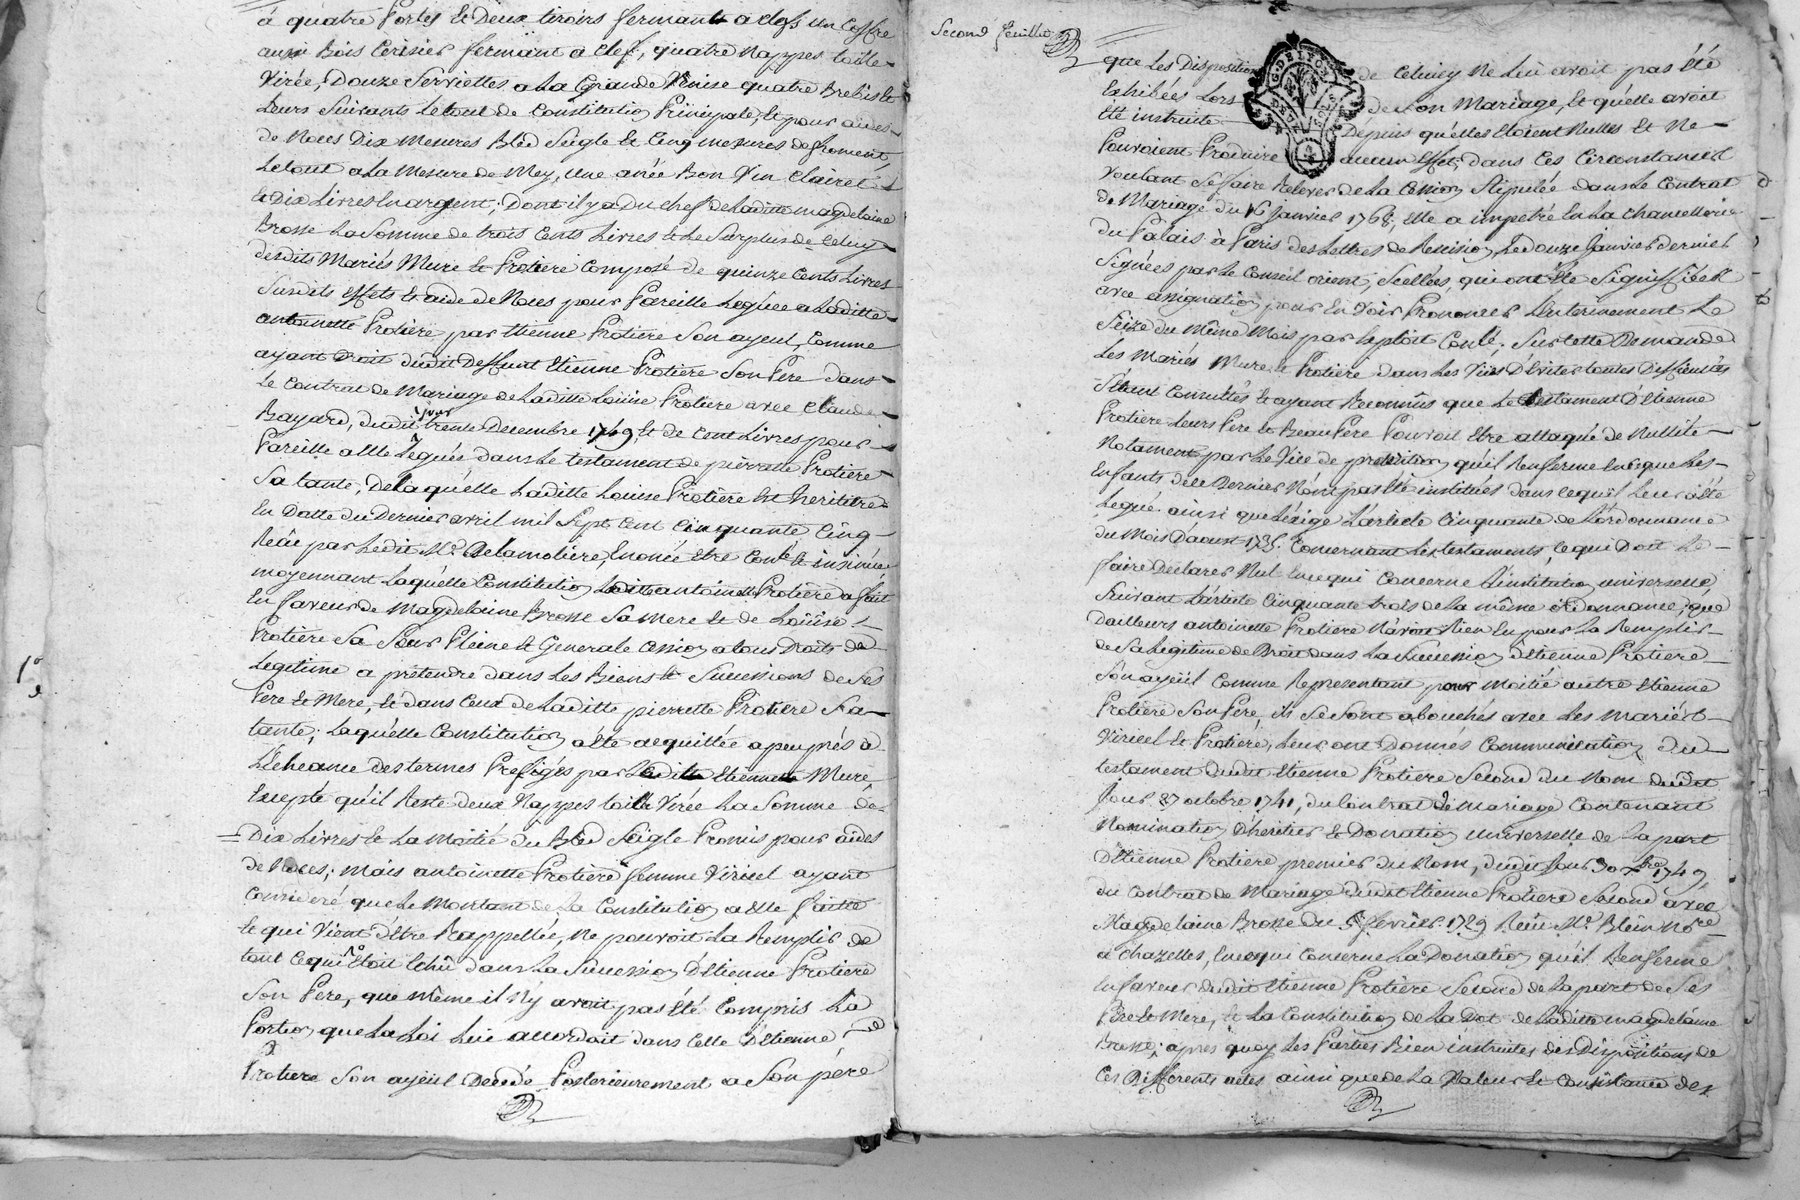 à quatre Portes et Deux tiroirs fermant a clefs un Coffre
aussi Bois Cerisier fermant a Clef, quatre Nappes toille
Virée, Douze Serviettes a La Grande Venise quatre Brebis et
Leurs Suivants Le tout de Constitution Principale, et pour aides
de Noces Dix mesures Bled Seigle et Cinq mesures de froment
Le tout a La Mesure de Mey, une anée Bon Vin Clairet
et Dix Livres En argent; Dont il y a Du Chef de Laditte magdelaine
Brosse La Somme de trois Cents Livres et Le Surplus de Celuy
desdits Mariés Mure et Protiere Composé de quinze Cents Livres
Susdits Effets et aide de Noces pour Pareille Leguée a Laditte
antoinette Protiere par Etienne Protiere Son ayeul, Comme
ayant Droit dudit Deffunt Etienne Protiere Son Pere dans
Le Contrat de Mariage de Laditte Louise Protiere avec Claude
Bayard, dudit jour trente Decembre 1749, et de Cent Livres pour
Pareille a Elle Leguée dans Le testament de pierrette Protiere
Sa tante, De laquelle Laditte Louise Protiere Est heritiere
En Datte du Dernier avril mil Sept Cent Cinquante Cinq
Reçu par Ledit Me. Delamotiere, Enoncé Etre Conlé et insinué
moyennant Laquelle Constitution Laditte antoinette Protiere a fait
En faveur de Magdelaine Brosse Sa Mere et de Louise
Protiere Sa Sœur Pleine et Generale Cession a tous Droits de
Legitime a prétendre dans Les Biens et Successions de Ses
Pere et Mere, et dans Ceux de Laditte pierrette Protiere Sa
tante; Laquelle Constitution a été acquittée a peu près a
L'Echeance des termes Prefigés par Ledit Etienne Mure,
Excepté qu'il Reste deux Nappes toille Virée La Somme de
Dix Livres et La Moitié du Bled Seigle Promis pour aides
de Noces; mais antoinette Protiere femme Viricel ayant
Consideré que Le Montant de La Constitution a Elle faitte
et qui Vient d'Etre Rappellée, Ne pouvoit La Remplir de
tout Ce qui Etoit Echû dans La Succession d'Etienne Protiere
Son Pere, que même il N'y avoit pas Eté Compris La
Portion que La Loi Lui accordoit dans Celle d'Etienne
Protiere Son ayeul Decedé Posterieurement a Son père
Second feuillet
que Les Dispositions de Celuicy Ne Lui avoit pas Eté
Exhibées Lors de Son Mariage, et qu'elle avoit
Eté instruite Depuis qu'elles Etoient Nulles et Ne
Pouvoient Produire aucun Effet; dans Ces Circonstances
Voulant Se faire Relever de La Cession Stipulée dans Le Contrat
de Mariage du 16 Janvier 1768, Elle a impetré En La Chancellerie
du Palais à Paris des Lettres de Rescision Le douze Janvier dernier
Signées par Le Conseil Scellées, qui ont Eté Signiffiées
avec assignation pour En Voir Prononcer L'enterinement Le
Seize du Même Mois par Exploit Conlé. Sur Cette Demande
Les Mariés Mure et Protiere dans Les Vües D'Eviter toutes Difficultés
S'étant Consultés et ayant Reconnûs que Le testament D'Etienne
Protiere Leurs Pere et Beau Pere Pouvoit Etre attaqué de Nullité
Notament par Le Vice de pretérition qu'il Renferme En Ce que Les
Enfants de ce Dernier N'ont pas Eté institués dans Ce qu'il Leur a Eté
Legué ainsi que L'éxige L'article Cinquante de L'ordonnance
du Mois D'aoust 1735. Concernant Les testaments, Ce qui Doit Le
faire Déclarer Nul En ce qui Concerne L'institution universelle,
Suivant L'article Cinquante trois de La même ordonnance; que
D'ailleurs antoinette Protiere N'avoit Rien Eu pour La Remplir
de Sa Legitime de Droit dans La Succession d'Etienne Protiere
Son ayeul Comme Representant pour Moitié autre Etienne
Protiere Son Pere, ils Se Sont abouchés avec Les Mariés
Viricel et Protiere, Leur ont Donnés Communication du
testament dudit Etienne Protiere Second du Nom dudit
Jour 27 octobre 1741, du Contrat de Mariage Contenant
Nomination D'heritier et Donation universelle de La part
D'Etienne Protiere premier du Nom, dudit Jour 30 Xbre 1749,
du Contrat de Mariage dudit Etienne Protiere Second avec
Magdelaine Brosse du 5 fevrier 1729 Reçu Me. Blein Nore
a Chazelles, En ce qui Concerne La Donation qu'il Renferme
En faveur dudit Etienne Protiere Second de La part de Ses
Pere et Mere, et La Constitution de La Dot de Laditte magdelaine
Brosse; après quoy Les Parties Bien instruites des Dispositions de
Ces Differents actes ainsi que de La Valeur et Consistance des
1o
G. DE LYON